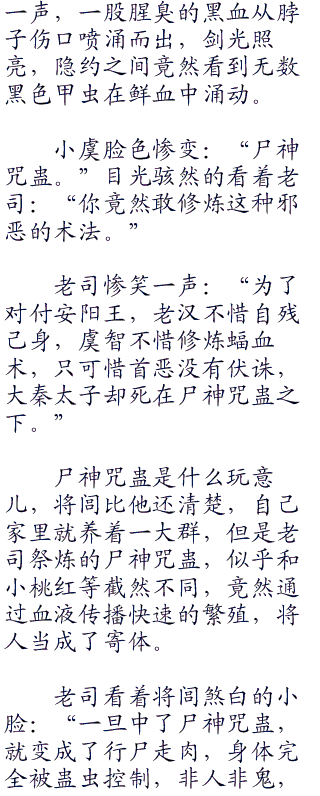 一声，一股腥臭的黑血从脖
子伤口喷涌而出，剑光照
亮，隐约之间竟然看到无数
黑色甲虫在鲜血中涌动。
小虞脸色惨变：“尸神
咒蛊。”目光骇然的看着老
司：“你竟然敢修炼这种邪
恶的术法。”
老司惨笑一声：“为了
对付安阳王，老汉不惜自残
己身，虞智不惜修炼蝠血
术，只可惜首恶没有伏诛，
大秦太子却死在尸神咒蛊之
下。”
尸神咒蛊是什么玩意
儿，将闾比他还清楚，自己
家里就养着一大群，但是老
司祭炼的尸神咒蛊，似乎和
小桃红等截然不同，竟然通
过血液传播快速的繁殖，将
人当成了寄体。
老司看着将闾煞白的小
脸：“一旦中了尸神咒蛊，
就变成了行尸走肉，身体完
全被蛊虫控制，非人非鬼，